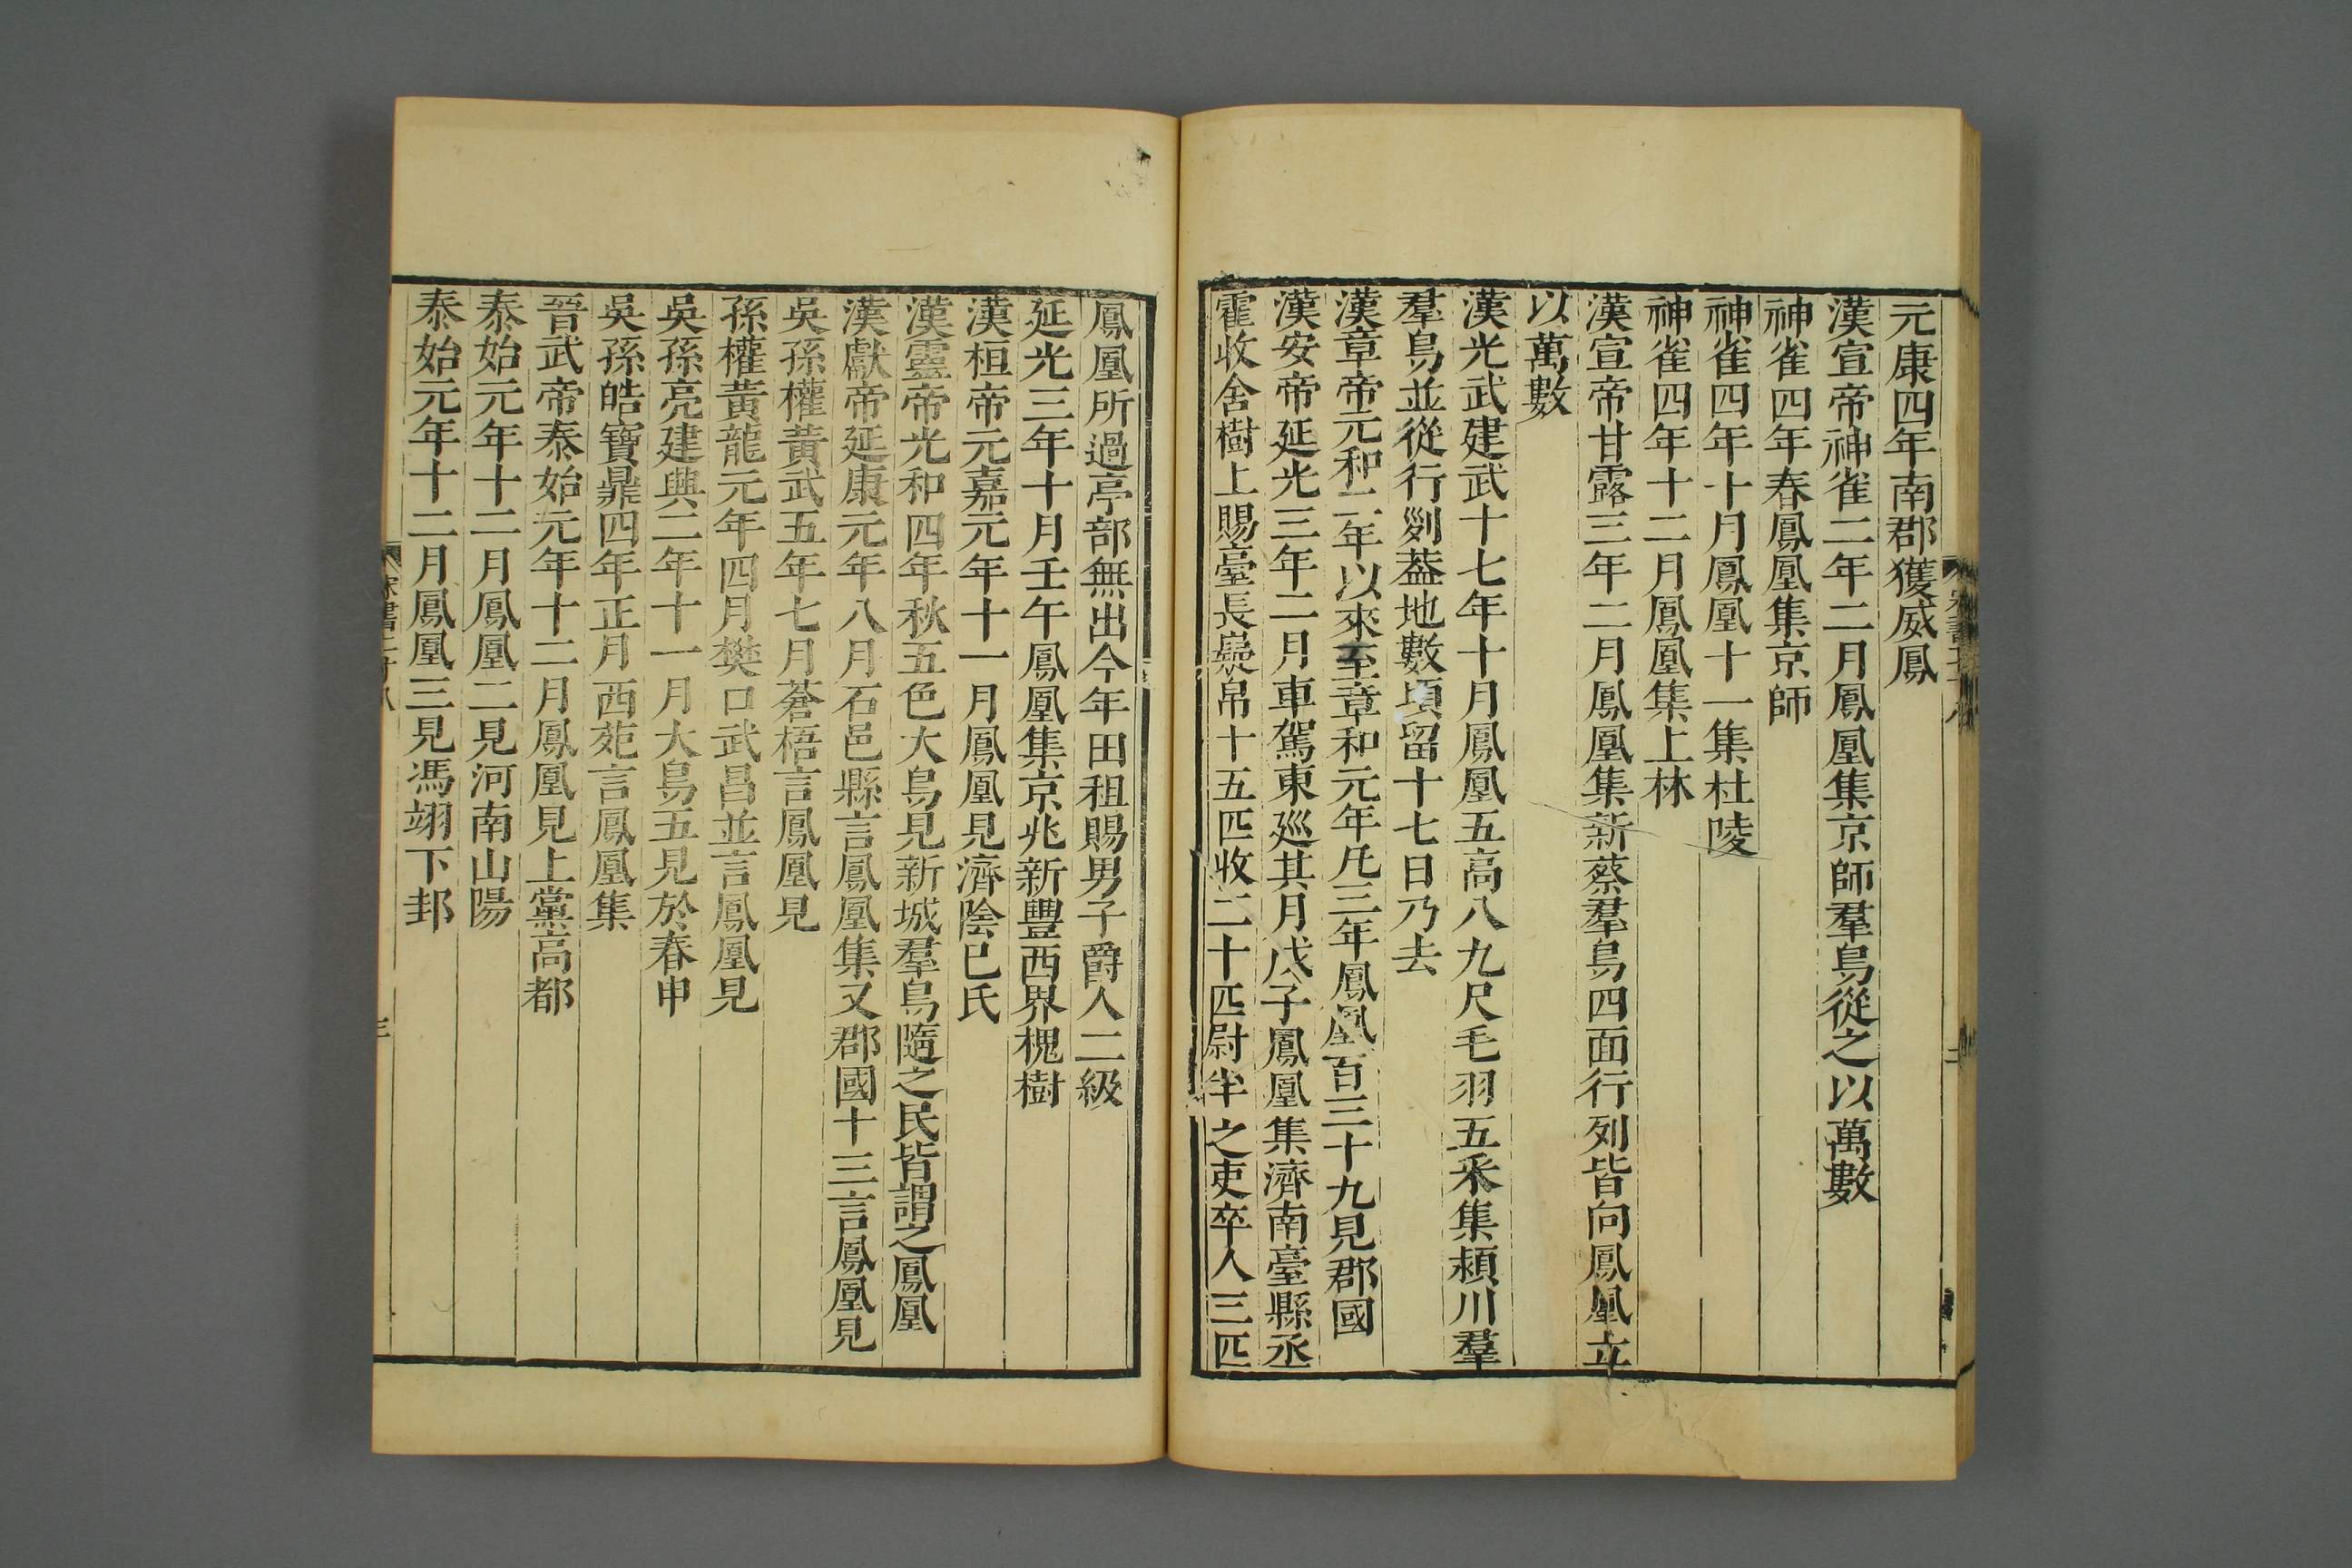 元康四年南郡獲威鳳
漢宣帝神雀二年二月鳳凰集京師羣鳥從之以萬數
神雀四年春鳳凰集京師
神雀四年十月鳳凰十一集杜陵
神雀四年十二月鳳凰集上林
漢宣帝甘露三年二月鳳凰集新蔡羣鳥四面行列皆向鳳凰立
以萬數
漢光武建武十七年十月鳳凰五高八九尺毛羽五采集潁川羣
羣鳥並從行列蓋地數頃留十七日乃去
漢章帝元和二年以來至章和元年凡三年鳳凰百三十九見郡國
漢安帝延光三年二月車駕東巡其月戊子鳳凰集濟南臺縣丞
霍收舍樹上賜臺長帛十五匹收二十匹尉半之吏卒人三匹
鳳凰所過亭部無出今年田租賜男子爵人二級
延光三年十月壬午鳳凰集京兆新豐西界槐樹
漢桓帝元嘉元年十一月鳳凰見濟陰己氏
漢靈帝光和四年秋五色大鳥見新城羣鳥隨之民皆謂之鳳凰
漢獻帝延康元年八月石邑縣言鳳凰集又郡國十三言鳳凰見
吳孫權黃武五年七月蒼梧言鳳凰見
孫權黃龍元年四月樊口武昌並言鳳凰見
吳孫亮建興二年十一月大鳥五見於春申
吳孫皓寶鼎四年正月西苑言鳳凰集
晉武帝泰始元年十二月鳳凰見上黨高都
泰始元年十二月鳳凰二見河南山陽
泰始元年十二月鳳凰三見馮翊下邽